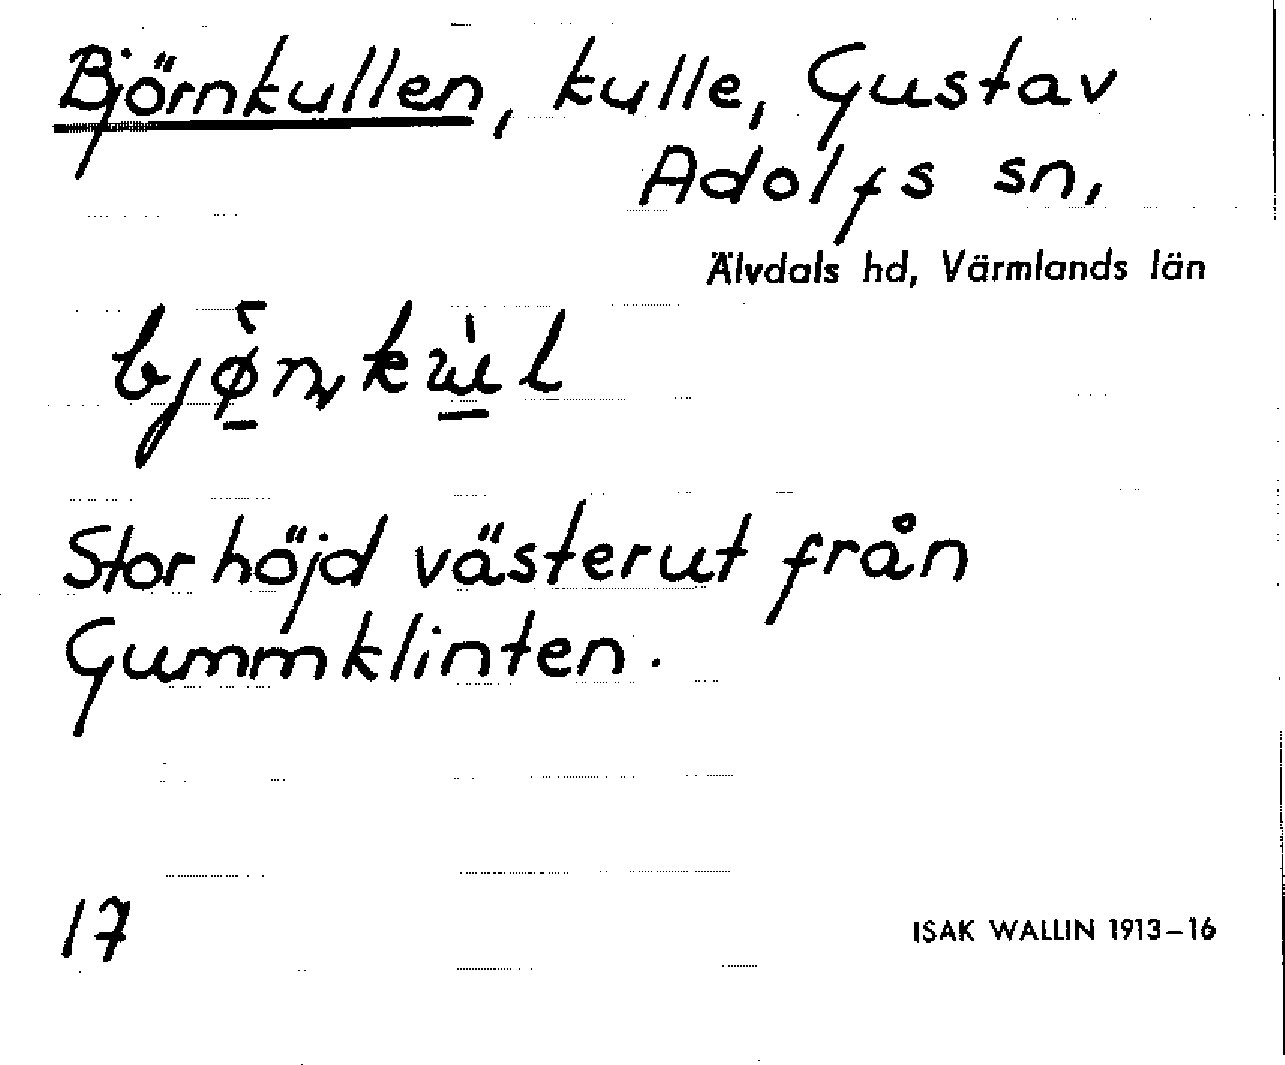 Björnkullen, kulle, Gustav
Adolfs sn,
Älvdals hd, Värmlands län
bjø̠̀ɳku̠̇l
Stor höjd västerut från
Gummklinten.
17
ISAK WALLIN 1913–16